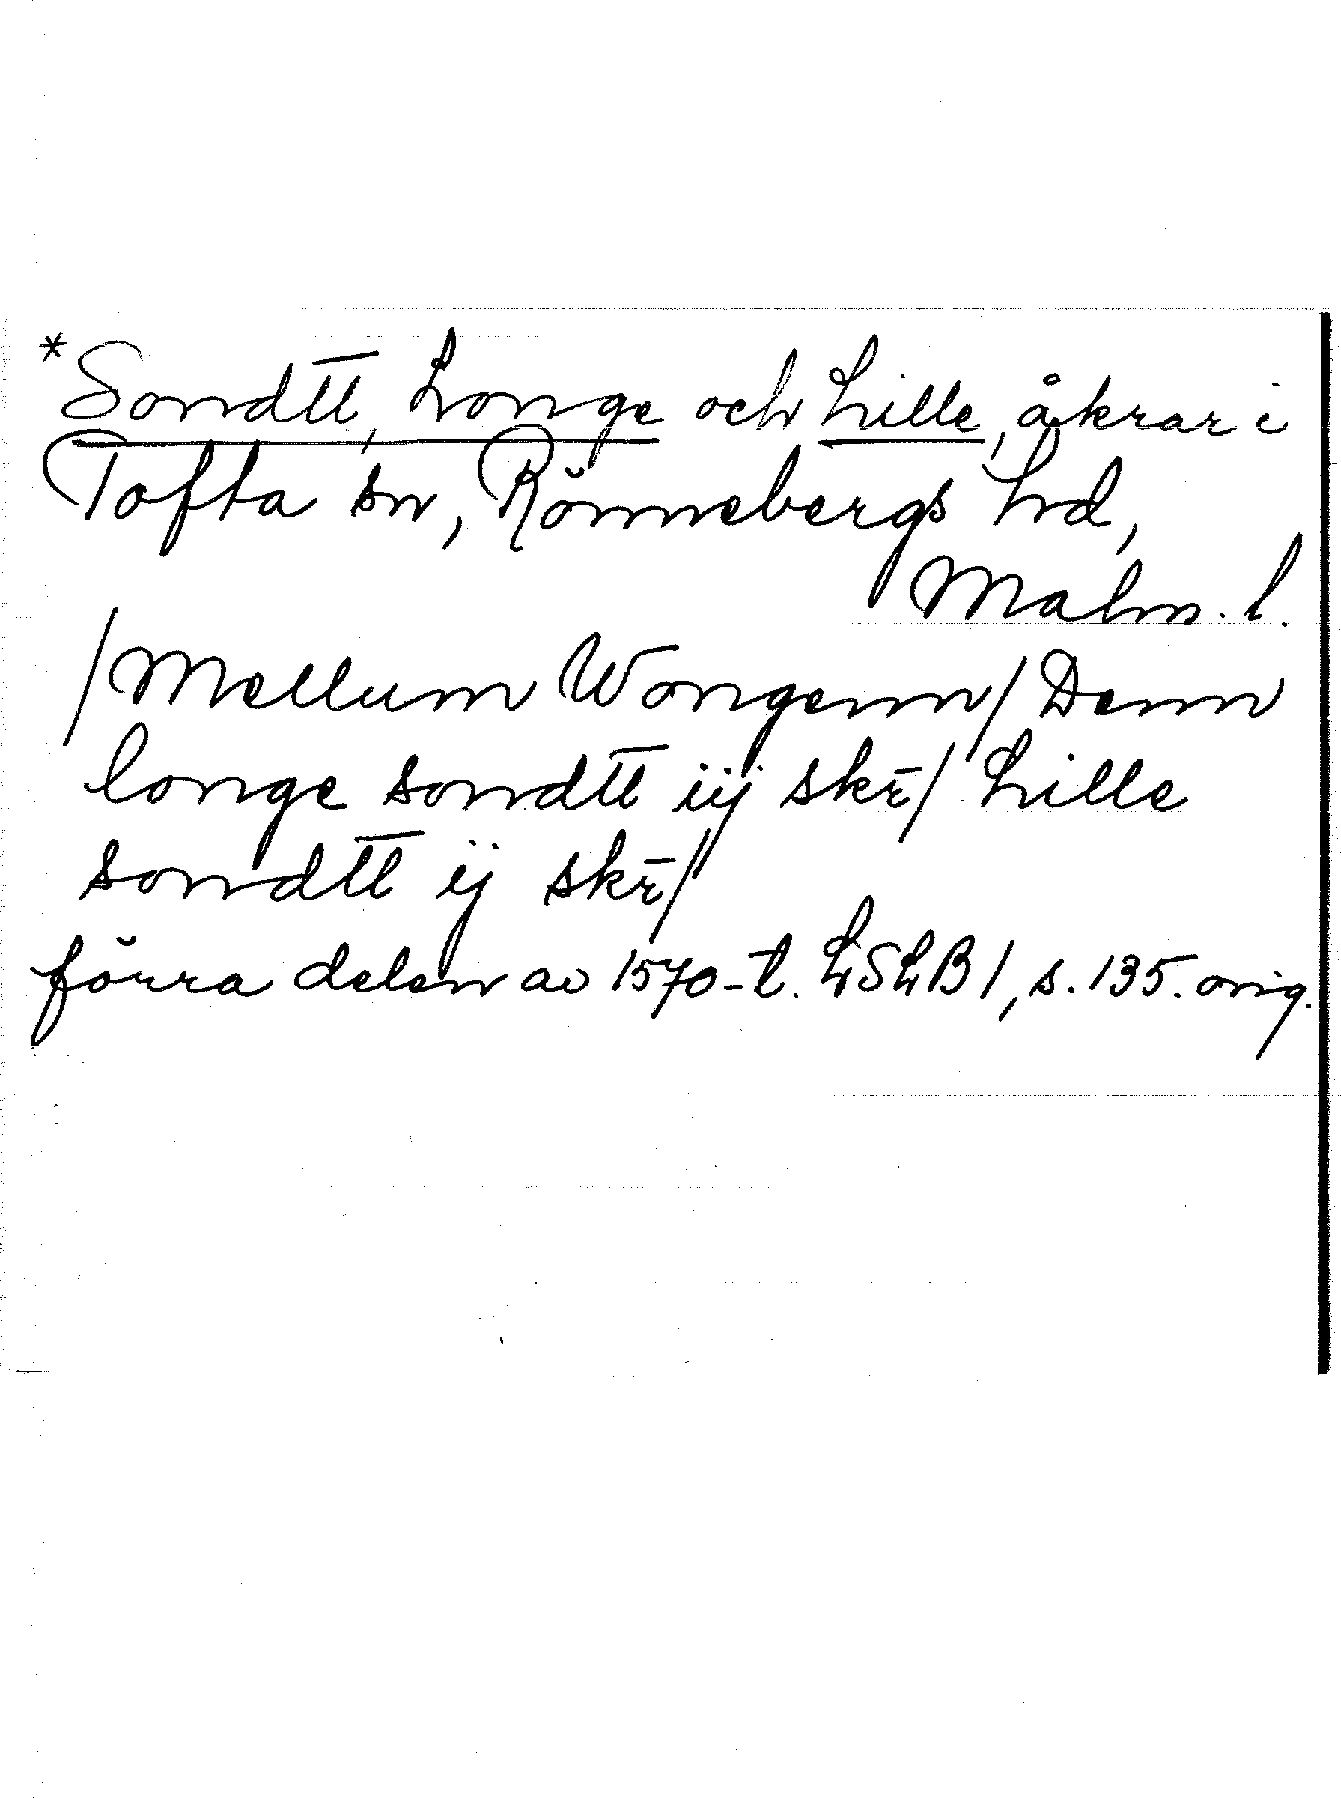 *Sondtt, Longe och Lille, åkrar i
Tofta sn, Rönnebergs hd,
Malm. l.
/Mellum Wongenn/ Denn
longe sondtt iij skr̄/ Lille
sondtt ij skr̄//
förra delen av 1570-t. LSLB 1, s. 135. orig.